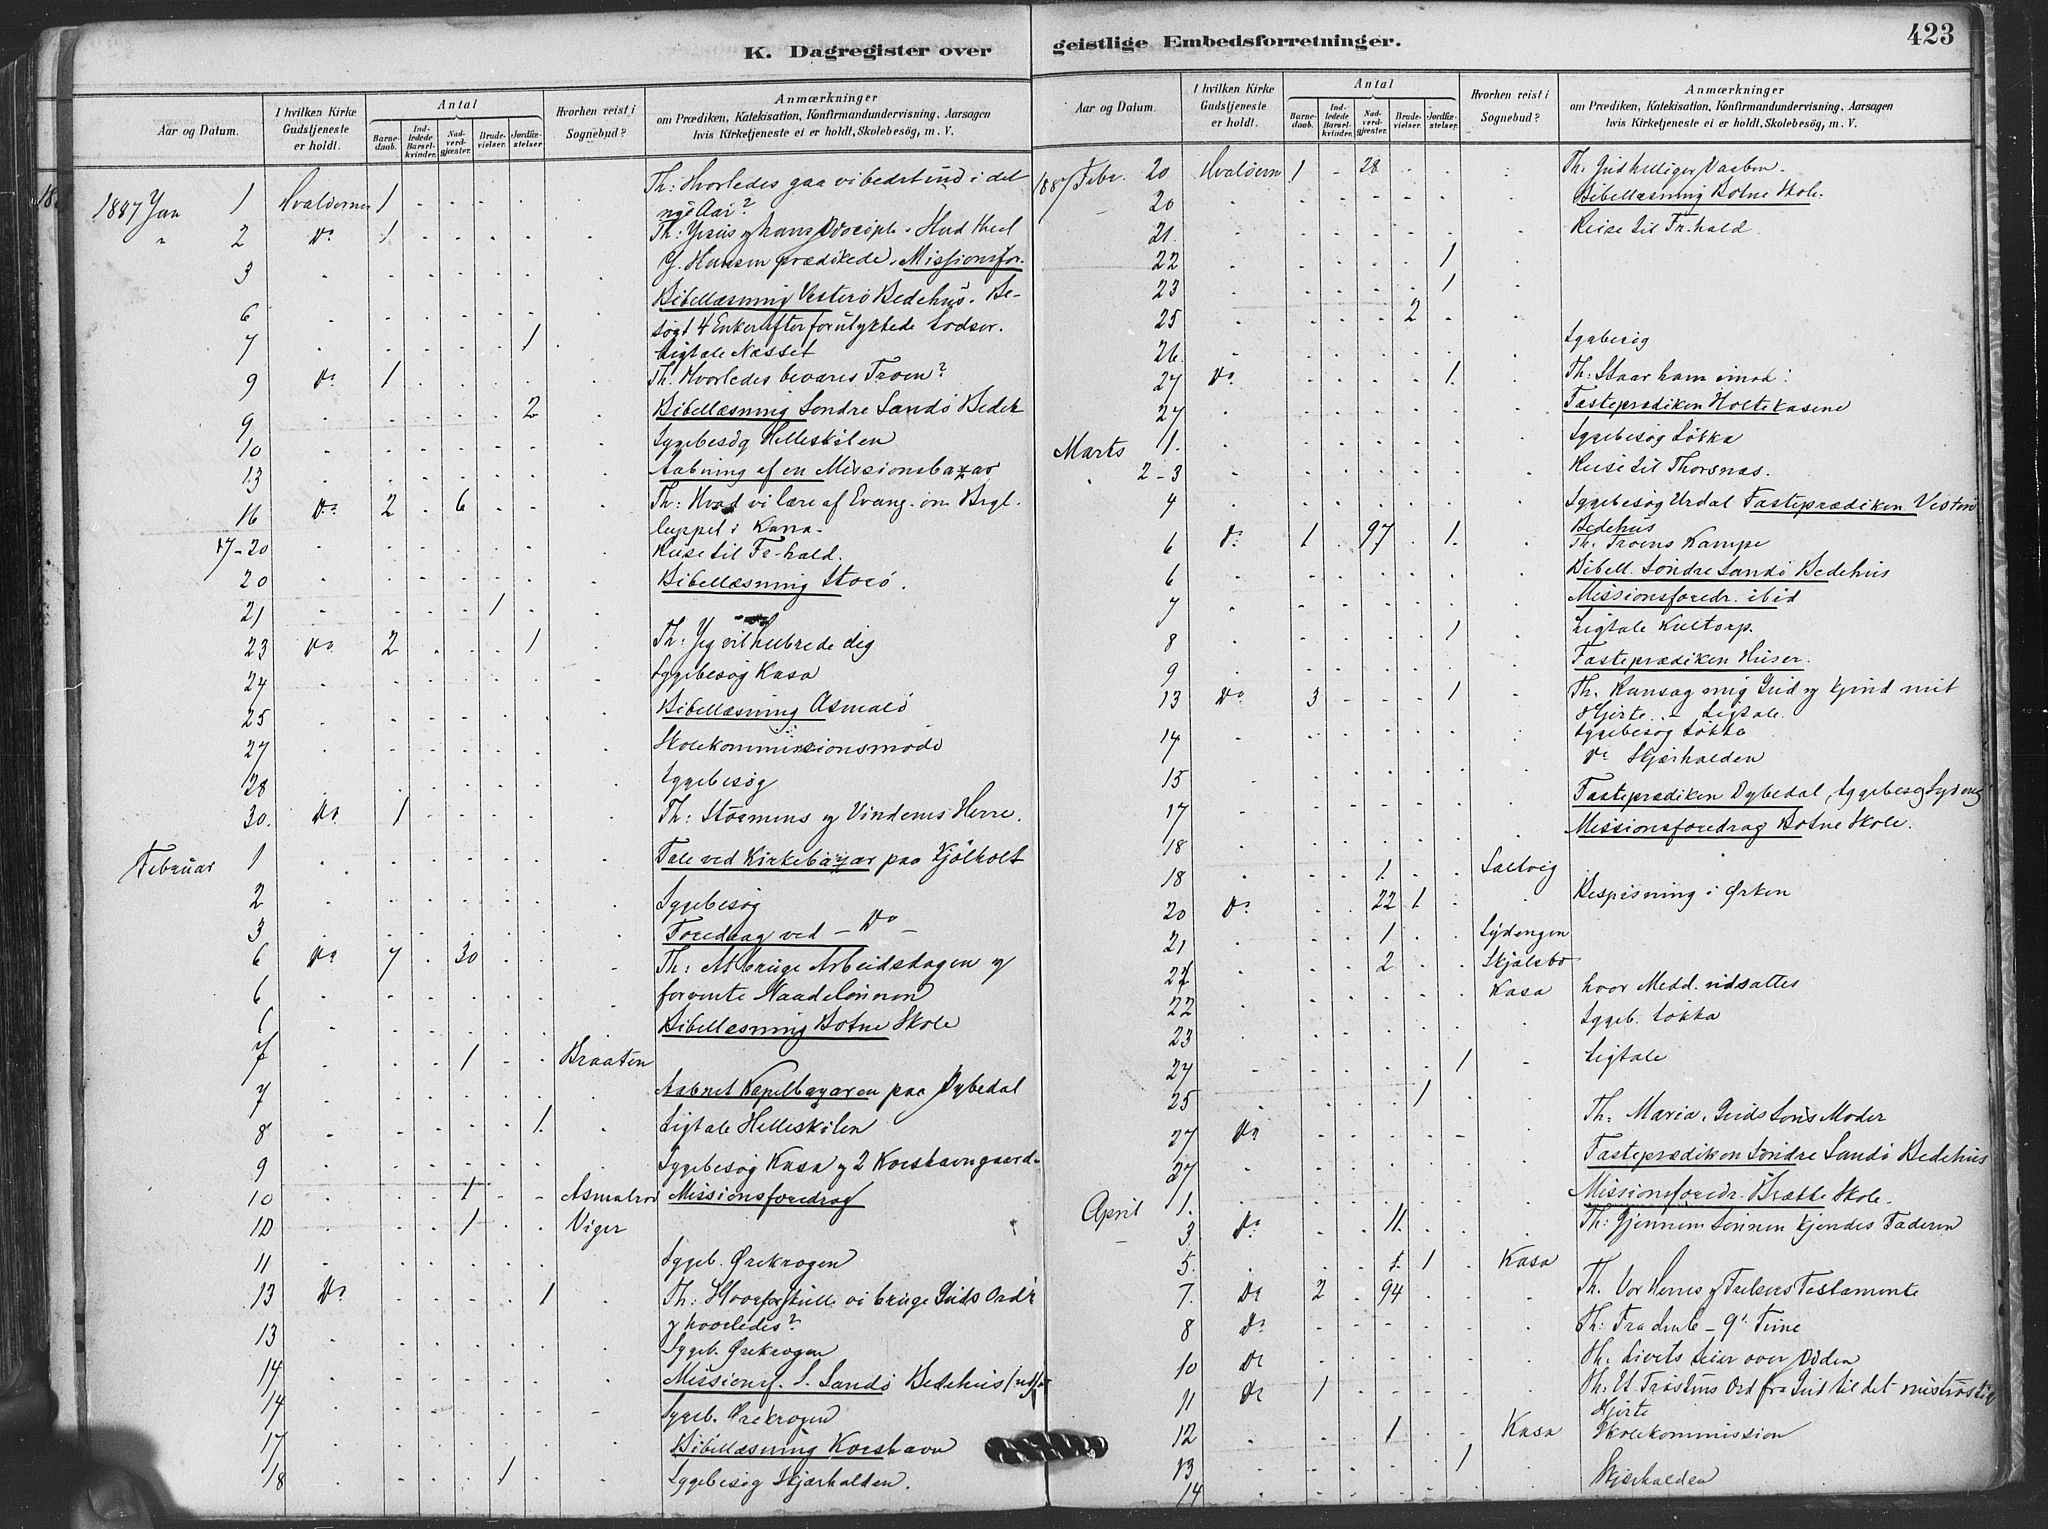 K. Dagregister over
Aar og Datum.
I hvilken Kirke Gudstjeneste er holdt.
Antal
Barnedaab.
Indledede Barselkvinder.
Nadverdgjæster.
Brudevielser.
Jordfæstelser
Hvorhen reist i Sognebud?
Anmærkninger
om Prædiken, Katekisation, Konfirmandundervisning, Aarsagen
hvis Kirketjeneste ei er holdt, Skolebesög, m. V.
1887 Jan 1 Hvalöerne 1 Th: Hvorledes gaa vi bedst ind i det
nye Aar?
" 2 Do 1 Th: Jesus og hans Disciple.
3 G. Hansen prædikede. Missionsfor.
Bibellæsning Vesterö Bedehus. Be-
6 søgt 4 Enker efter forulykkede Lodser.
7 1 Ligtale Næsset
9 Do 1 Th. Hvorledes bevares Troen?
9 2 Bibellæsning Söndre Sandö Bedeh
10 Sygebesög Helleskilen
13 Aabning af en Missionsbazar
16 Do 2 6 Th: Hvad vi lære af Evang. om Bryl-
luppet i Kana.
17-20 Reise til Fr-hald.
20 Bibellæsning Storö.
21 1
23 Do 2 1 Th: Jeg vil helbrede dig
24 Sygebesøg Kasa
25 Bibellæsning Asmalö
27 Skolekommissionsmöde
28 Sygebesøg
30. Do 1 Th: Stormens og Vindenes Herre.
Februar 1 Tale ved Kirkebazar paa Kjölholt
2 Sygebesøg
3 Foredrag ved - Do -
6 Do 7 30 Th: At bruge Arbeidsdagen og
6 forvente Naadelönnen
Bibellæsning Botne Skole
7 1 Braaten
7 Aabnet Kapelbazaren paa Dybedal
8 1. Ligtale Helleskilen
9 Sygebesøg Kasa og 2 Korshavngaard-
10 1 Asmalrod Missionsforedrag
10 1 Viger
11 Sygeb. Ørekrogen
13 Do 1 Th: Hvorfor skulle vi bruge Guds Ord
og hvorledes?
13 Sygeb. Ørekrogen
14 Missionsf. S. Sandö Bedehus
14 Sygeb. Ørekrogen
17 Bibellæsning Korshavn
18 1 Sygebesøg Skjærhalden.
geistlige Embedsforretninger.
423
Aar og Datum.
I hvilken Kirke Gudstjeneste er holdt.
Antal
Barnedaab.
Indledede Barselkvinder.
Nadverdgjæster.
Brudevielser.
Jordfæstelser.
Hvorhen reist i Sognebud?
Anmærkninger
om Prædiken, Katekisation, Konfirmandundervisning, Aarsagen
hvis Kirketjeneste ei er holdt, Skolebesög, m. V.
1887 Febr. 20 Hvalöern 1 28 Th: Gud helliger Vaaben.
20 Bibellæsning Botne Skole.
21. Reise til Fr.hald.
22 1
23 1
25 2
26. Sygbesøg
27 Do 1. Th: Staar ham imod!
27 Fasteprædiken Holtekasene
Marts 1. Sygebesøg Lökka
2-3 Reise til Thorsnæs.
4 Sygebesøg Urdal Fasteprædiken Vesterö
Bedehus
6 Do 1 97 1. Th. Troens Kampe
6 Bibell. Söndre Sandö Bedehus
7 Missionsforedr. ibid
8 1 Ligtale Kultorp.
9 Fasteprædiken Huser.
13 Do 3 1 Th. Ransag mig Gud og kjend mit
Hjerte. - Ligtale.
14 Sygebesøg Lökka
15 Do Skjærhalden
17 Fasteprædiken Dybedal, Sygebesøg Sydeng
18 Missionsforedrag Botne Skole.
18 1. Saltvig
20 Do 22 1 Bespisning i Ørken
21 1 Sydengen
22 2 Skjælsbo
22 Kasa hvor Medd. udsattes
23 Sygeb. Lökka
24 1 Ligtale
25 1
27 Do Th. Maria, Guds Söns Moder
27 Fasteprædiken Söndre Sandö Bedehus
April 1. Missionsforedr. Brække Skole.
3 Do 11. Th: Gjennem Sönnen kjendes Faderen
5. 1. 1 Kasa
7. Do 2 94 Th. Vor Herres og Frelsers Testamente
8 Do Th: Fra 9de Time
10 Do Th. Livets Seier over Döden
11 Do 1 Th: Et Tröstens Ord fra Gud til det miströstige
Hjerte
12 1 Kasa Skolekommission
13 1
14 Skjærhalden